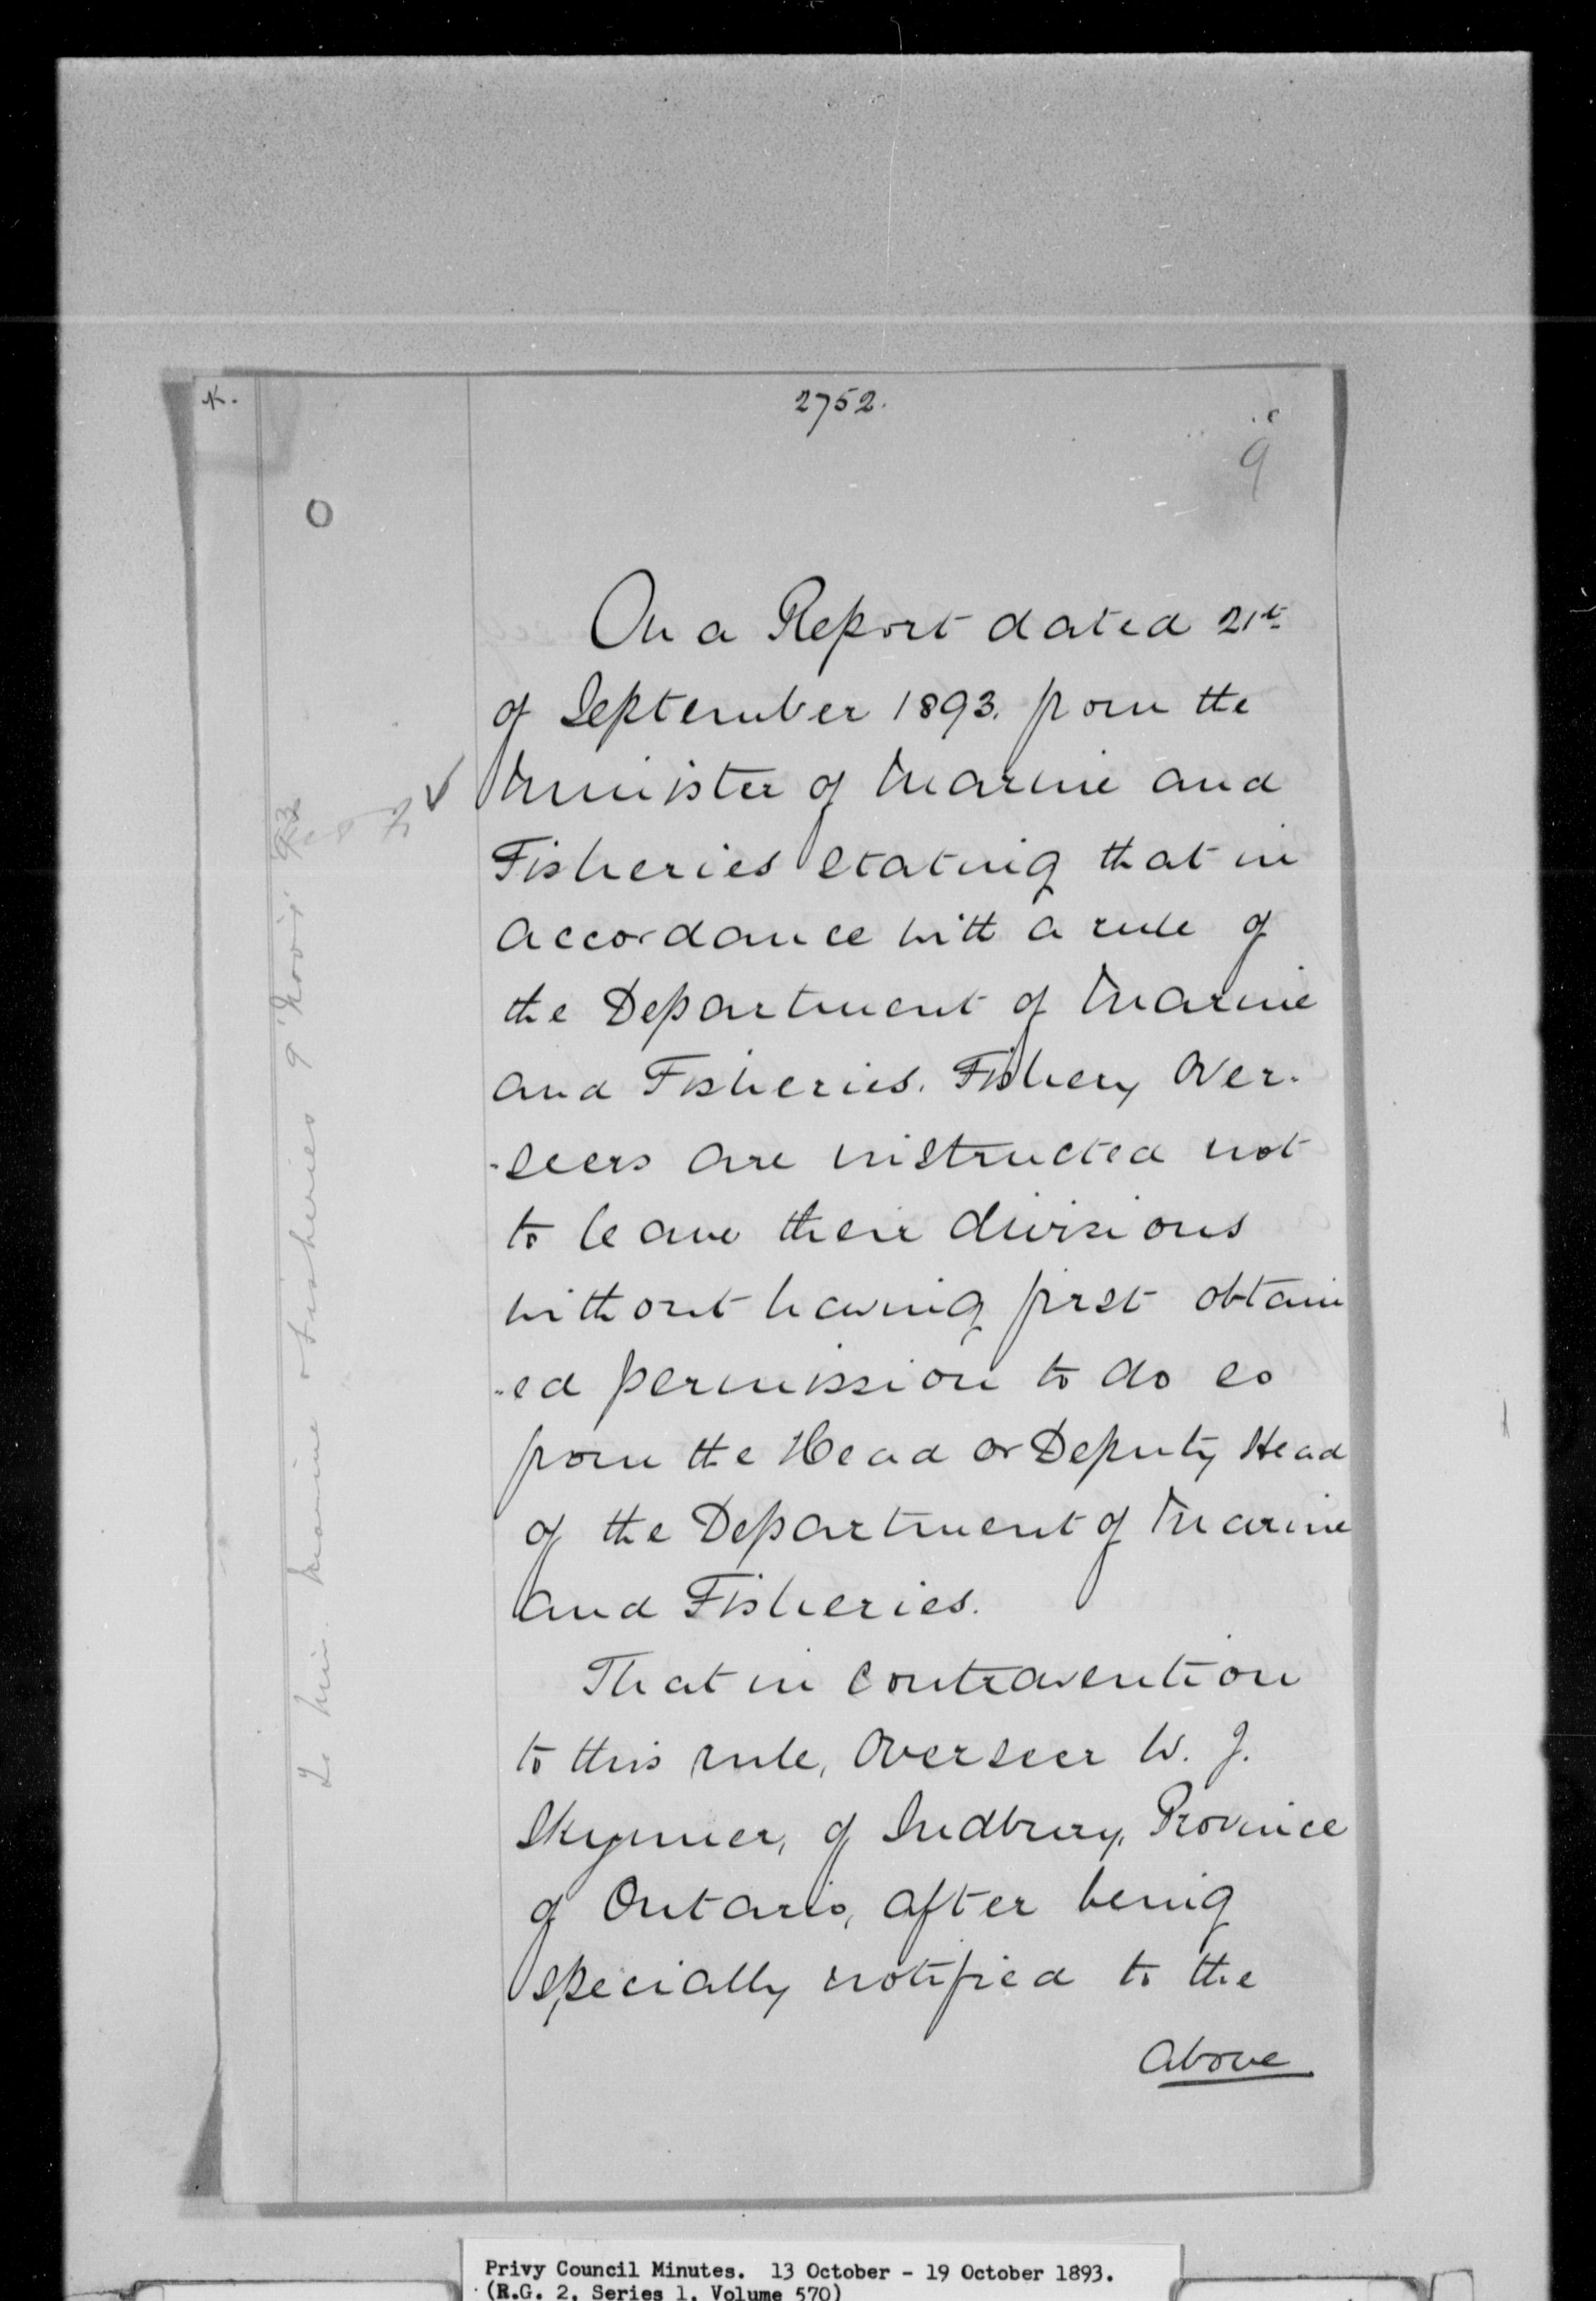 K.
2752.
9
O
On a Report dated 21st
of September 1893. from the
Minister of Marine and
Fisheries stating that in
accordance with a rule of
the Department of Marine
and Fisheries. Fishery Over-
-seers are instructed not
to leave their divisions
without having first obtain
-ed permission to do so
from the Head or Deputy Head
of the Department of Marine
and Fisheries.
That in contravention
to this rule, Overseer W. J.
Skynner, of Sudbury, Province
of Ontario, after being
specially notified to the
above
Min. Marine & Fisheries 9 Nov. 93
Privy Council Minutes. 13 October - 19 October 1893.
(R.G. 2, Series 1, Volume 570)